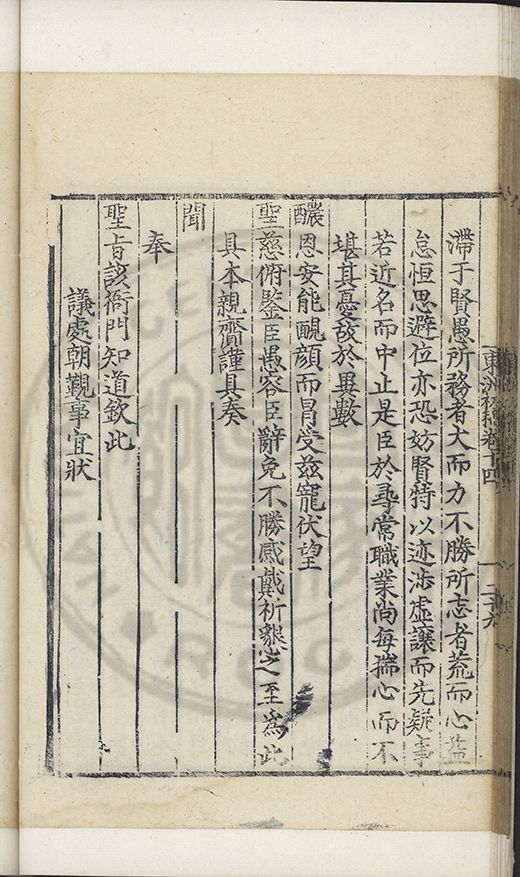 東洲初稿卷十四
二十九
滯于賢愚所務者大而力不勝所志者荒而心益
怠恒思避位亦恐妨賢特以迹涉虛讓而先疑事
若近名而中止是臣於尋常職業尚每揣心而不
堪其憂故於異數
醲恩安能靦顏而冒受茲寵伏望
聖慈俯鑒臣愚容臣辭免不勝感戴祈懇之至為此
具本親齎謹具奏
聞
奉
聖旨該衙門知道欽此
議處朝覲事宜狀